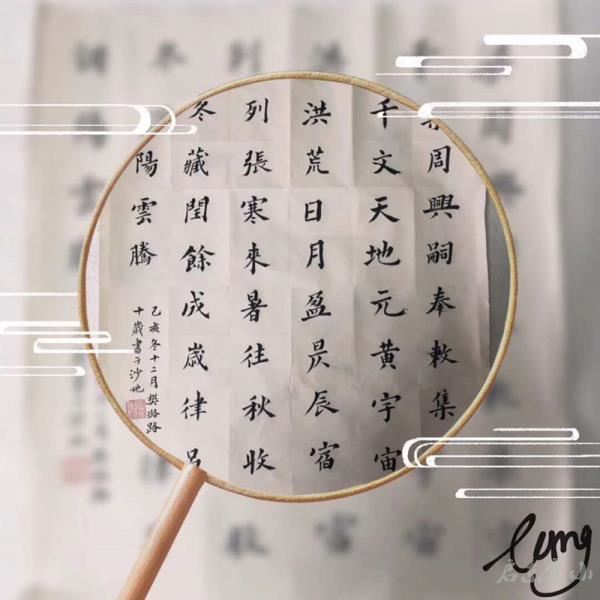 周興嗣奉敕集
千文天地元黃宇宙
洪荒日月盈昃辰宿
列張寒來暑往秋收
冬藏閏餘成歲律呂
陽雲騰
乙亥冬十二月樊路路
十歲書于沙地